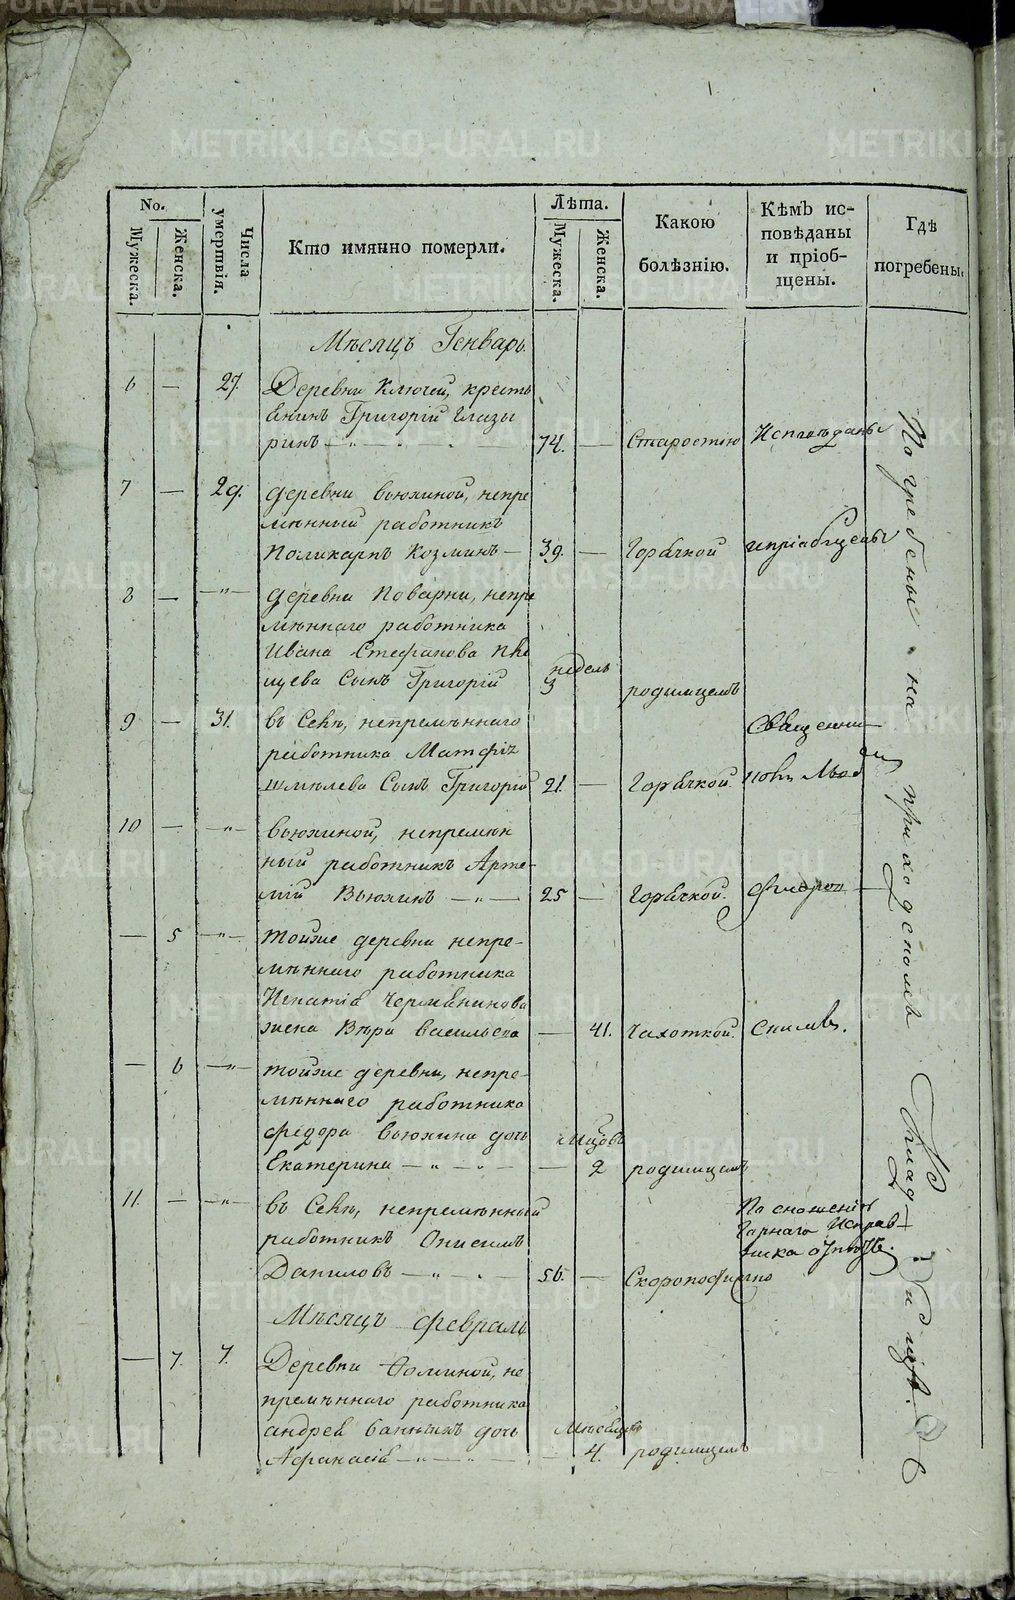 METRIKI.GASO-URAL.RU
No.
Мужеска.
Женска.
Числа умертвія.
Кто имянно померли.
Лѣта.
Мужеска.
Женска.
Какою болѣзнію.
Кѣмъ исповѣданы и пріобщены.
Гдѣ погребены.
Мѣсяцъ Генварь
6 — 27. Деревни Ключей, кресть
янинъ Григорій Глазы
ринъ — 74. — Старостію Исповѣданы
7 — 29. деревни Вьюхиной, непре
мѣнный работникъ
Поликарпъ Козминъ — 39. — Горячкой и пріобщены
8 — — деревни Поварни, непре
мѣннаго работника
Ивана Стефанова
сынъ Григорій недель 3 родимцемъ
9 — 31. въ Селѣ, непремѣннаго
работника Матфія
Шмелева Сынъ Григорій 21. — Горячкой Священни
10 — — Вьюхиной, непремѣн
ный работникъ Арте-
мій Вьюхинъ — 25 — Горячкой.
— 5 — тойже деревни непре-
мѣннаго работника
Игнатія
жена Вѣра Васильева — 41. Чахоткой.
— 6 — тойже деревни, непре-
мѣннаго работника
Федора Вьюхина дочь
Екатерина — 2 родимцемъ
11. — — въ Селѣ, непремѣнный
работникъ Онисимъ
Даниловъ — 56. — Скоропостижно
По сношенію
Горнаго Исправ-
ника
Мѣсяцъ февраль
— 7. 7. Деревни Фоминой, не
премѣннаго работника
андрея банныхъ дочь
Афанасія — 4. родимцемъ
Погребены на приходскомъ